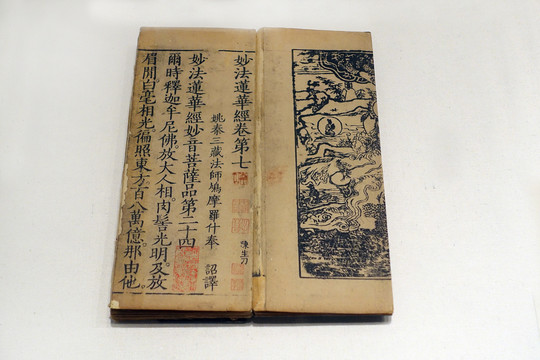 妙法蓮華經卷第七
姚秦三藏法師鳩摩羅什奉　詔譯
陳生刀
妙法蓮華經妙音菩薩品第二十四
爾時釋迦牟尼佛。放大人相。肉髻光明。及放
眉間白毫相光。徧照東方百八萬億。那由他。